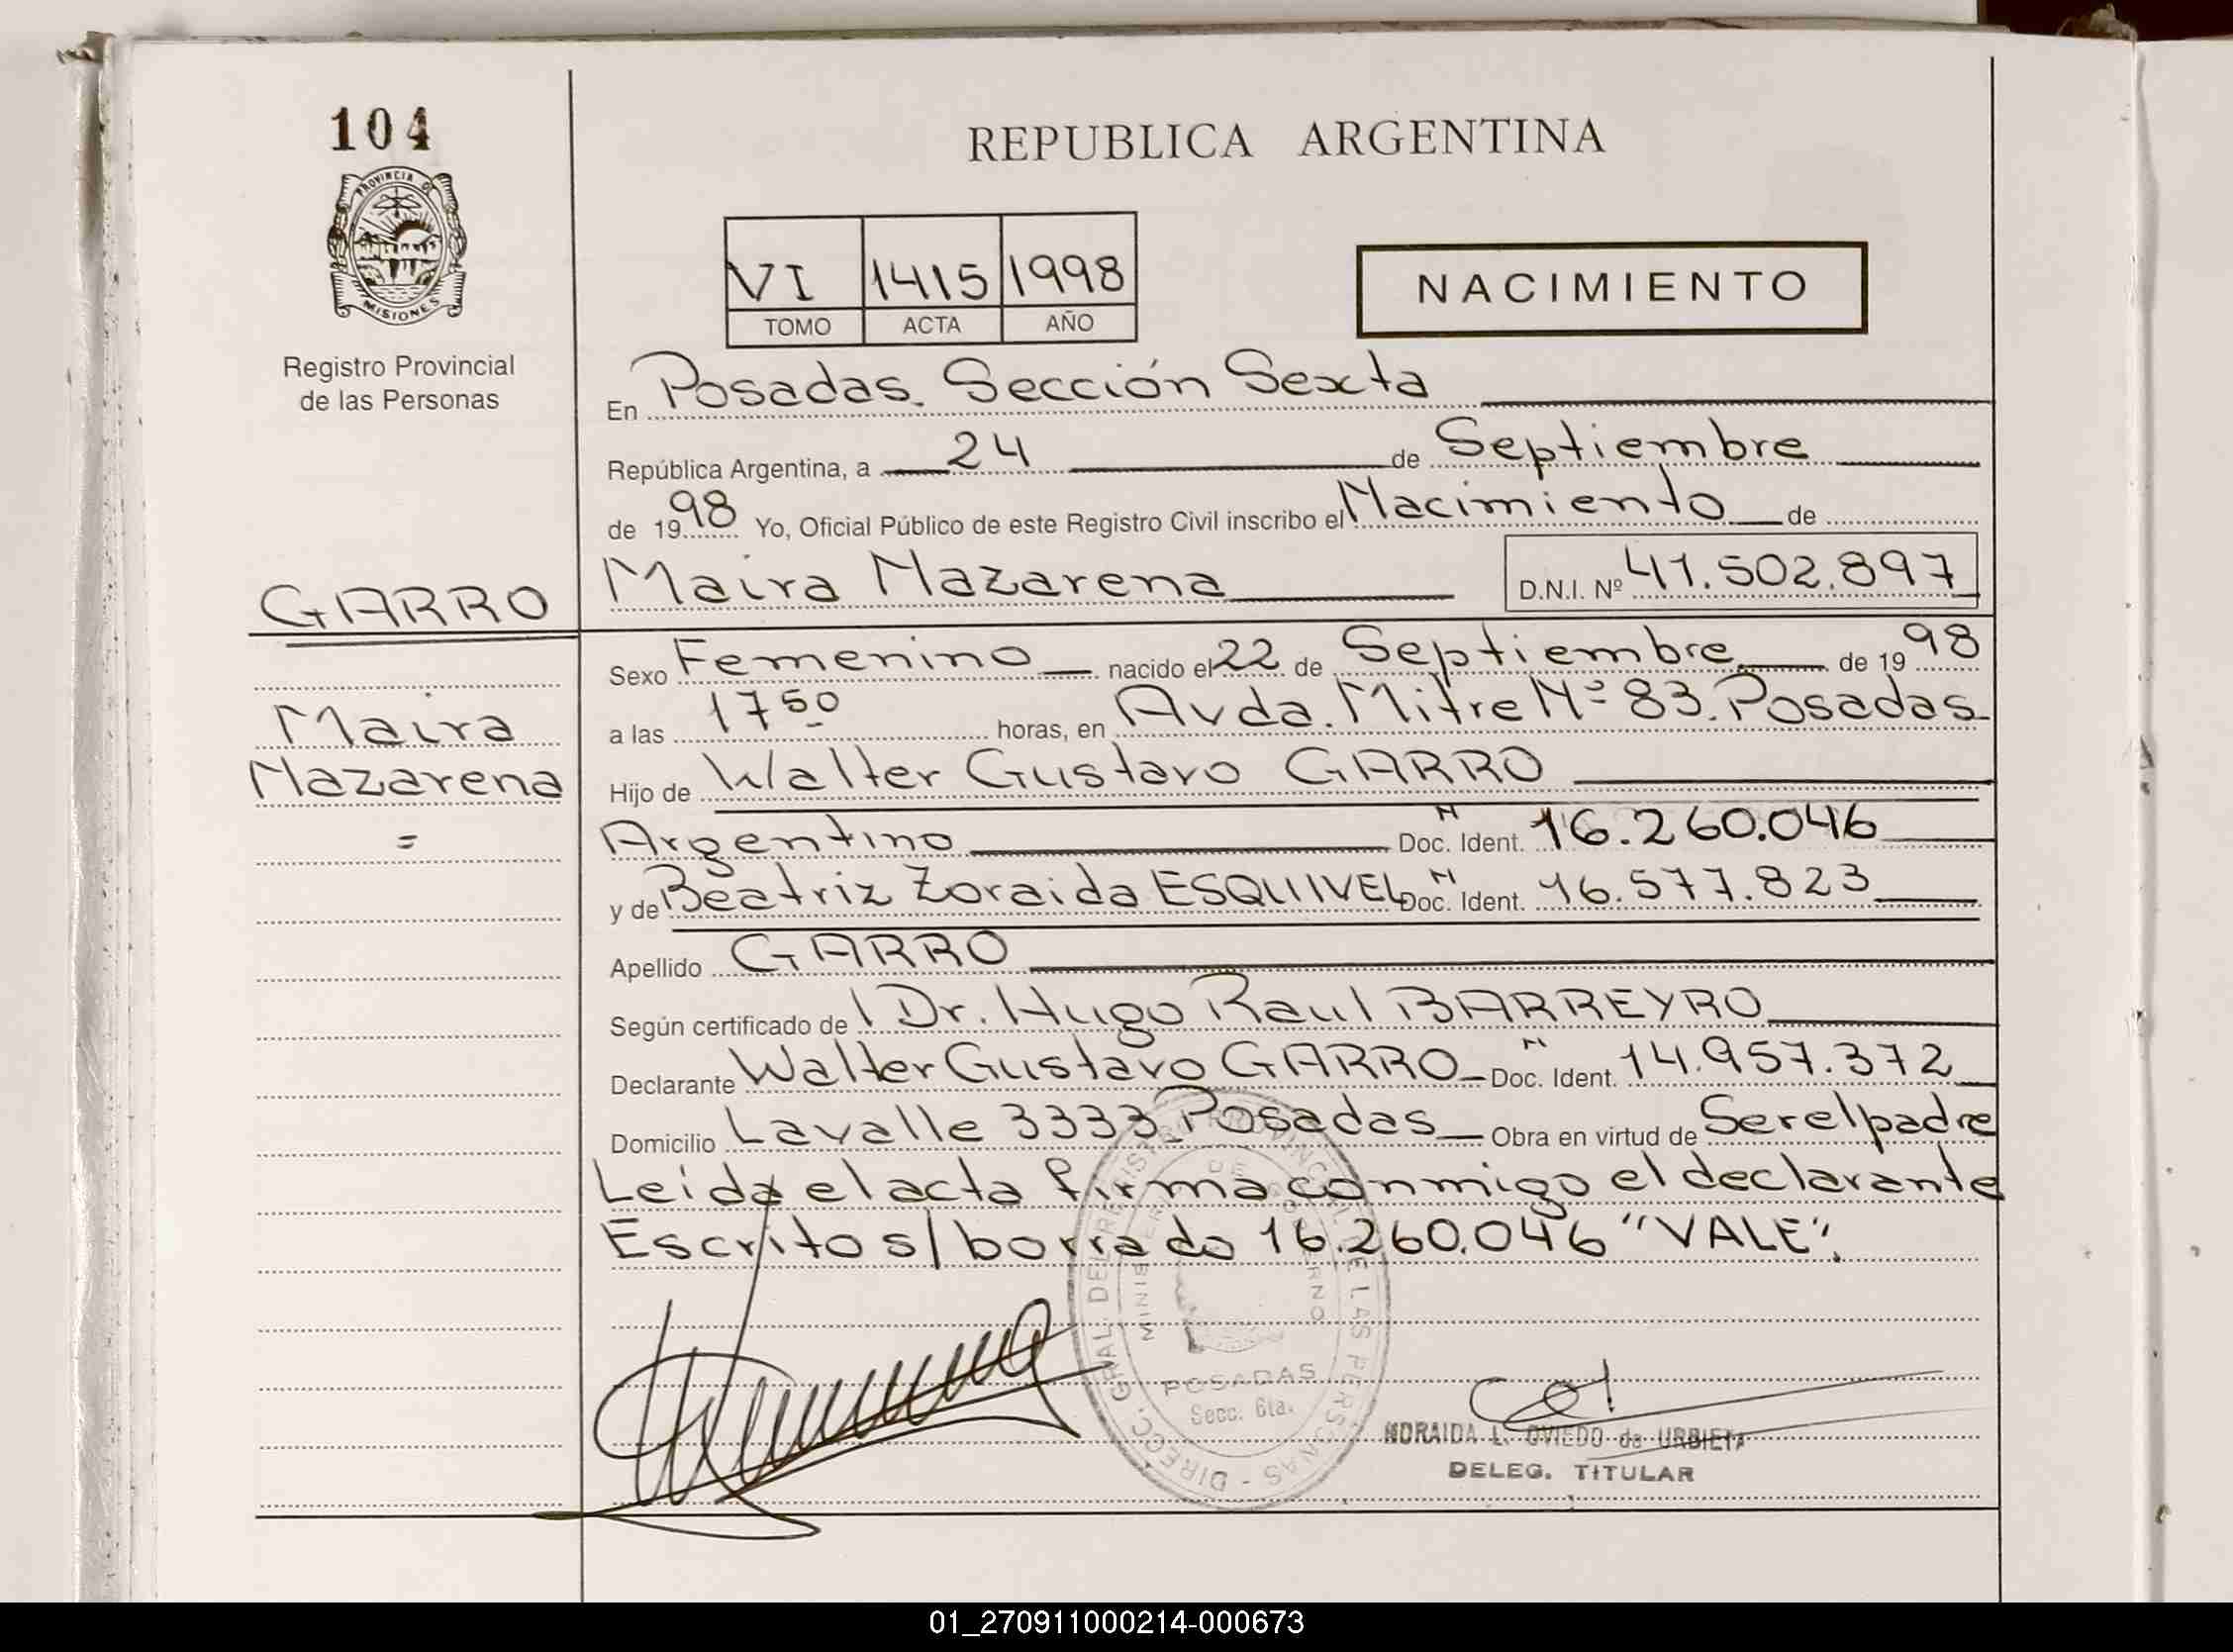 104
PROVINCIA D
MISIONES
Registro Provincial
de las Personas
GARRO
Maira
Nazarena
=
REPUBLICA ARGENTINA
VI 1415 1998
TOMO ACTA AÑO
NACIMIENTO
En Posadas. Sección Sexta
República Argentina, a 24 de Septiembre
de 1998 Yo, Oficial Público de este Registro Civil inscribo el Nacimiento de
Maira Nazarena D.N.I. Nº 41.502.897
Sexo Femenino nacido el 22 de Septiembre de 1998
a las 17 50 horas, en Avda. Mitre Nº 83. Posadas
Hijo de Walter Gustavo GARRO
Argentino Doc. Ident. N 16.260.046
y de Beatriz Zoraida ESQUIVEL Doc. Ident. N 16.577.823
Apellido GARRO
Según certificado de Dr. Hugo Raul BARREYRO
Declarante Walter Gustavo GARRO Doc. Ident. N 14.957.372
Domicilio Lavalle 3333 Posadas Obra en virtud de Ser el padre
Leida el acta firma conmigo el declarante
Escrito s/borrado 16.260.046 "VALE".
POSADAS
Secc. 6ta.
L. OVIEDO de URBIETA
DELEG. TITULAR
01_270911000214-000673